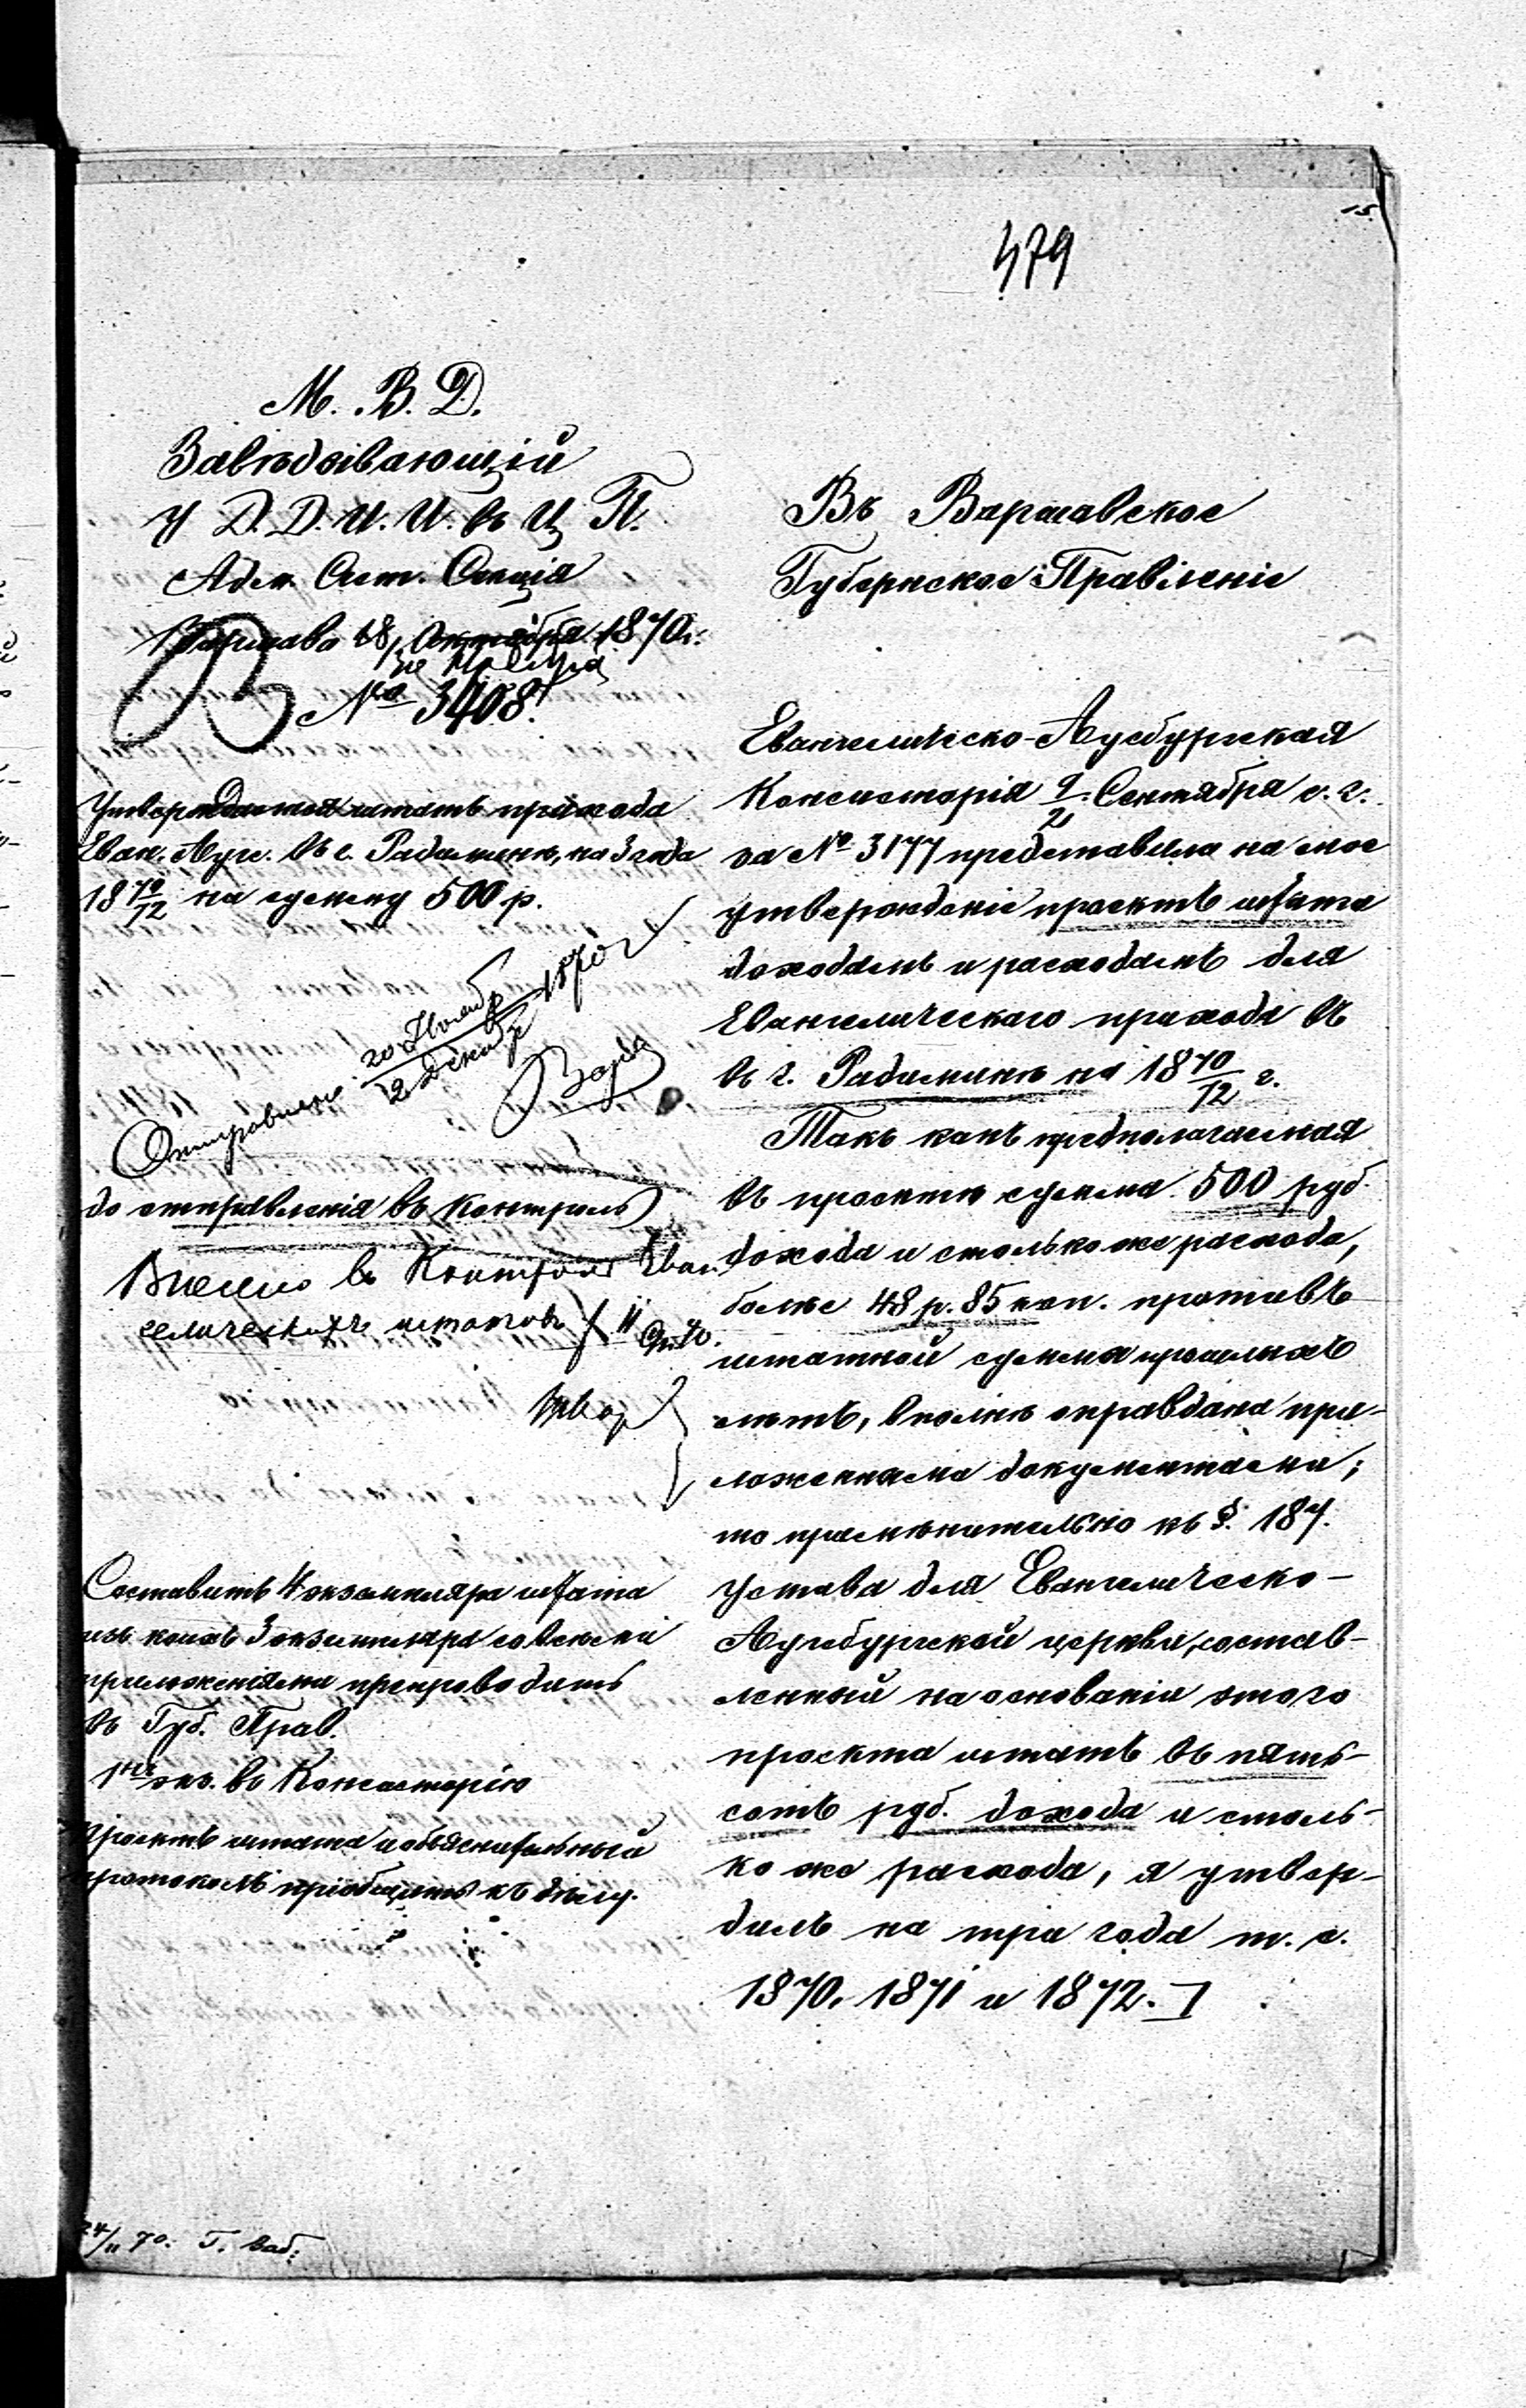 15.
479
М. В. Д.
Завѣдывающій
У Д. Д. И. И. въ Ц П.
Адм. Сет. Секція
Варшава 18/ Октября 1870 г.
30 Ноября
№ 3408.
Утверждается штатъ прихода
Еван. Ауг. въ г. Радиминѣ, на 3 года
18 70/72 на сумму 500 р.
Отправлено 20 Ноября / 2 Декабря 1870 г
до отправленія въ Контроль
Внесено въ Контроль Еван
гелическихъ штатовъ
Составить 4 экземпляра штата
изъ коихъ 3 экземпляра со всѣми
приложеніями препроводить
въ Губ. Прав.
1ый экз. въ Консисторію
Проектъ штата и объяснительный
протоколъ пріобщить къ дѣлу.
24/11 70.
Въ Варшавское
Губернское Правленіе
Евангелическо-Аугсбургская
Консисторія 9/2 Сентября с. г.
за № 3177 представила на мое
утвержденіе проектъ штата
доходамъ и расходамъ для
Евангелическаго прихода въ
въ г. Радиминѣ на 18 70/72 г.
Такъ какъ предполагаемая
въ проектѣ сумма 500 руб
дохода и столько же расхода,
болѣе 48 р. 85 коп. противъ
штатной суммы прошлыхъ
лѣтъ, вполнѣ оправдана при-
ложенными документами;
то примѣнительно къ §. 187.
Устава для Евангелическо-
Аугсбургской церкви, состав-
ленный на основаніи этого
проекта штатъ въ пять-
сотъ руб. дохода и столь-
ко же расхода, я утвер-
дилъ на три года т. е.
1870, 1871 и 1872.